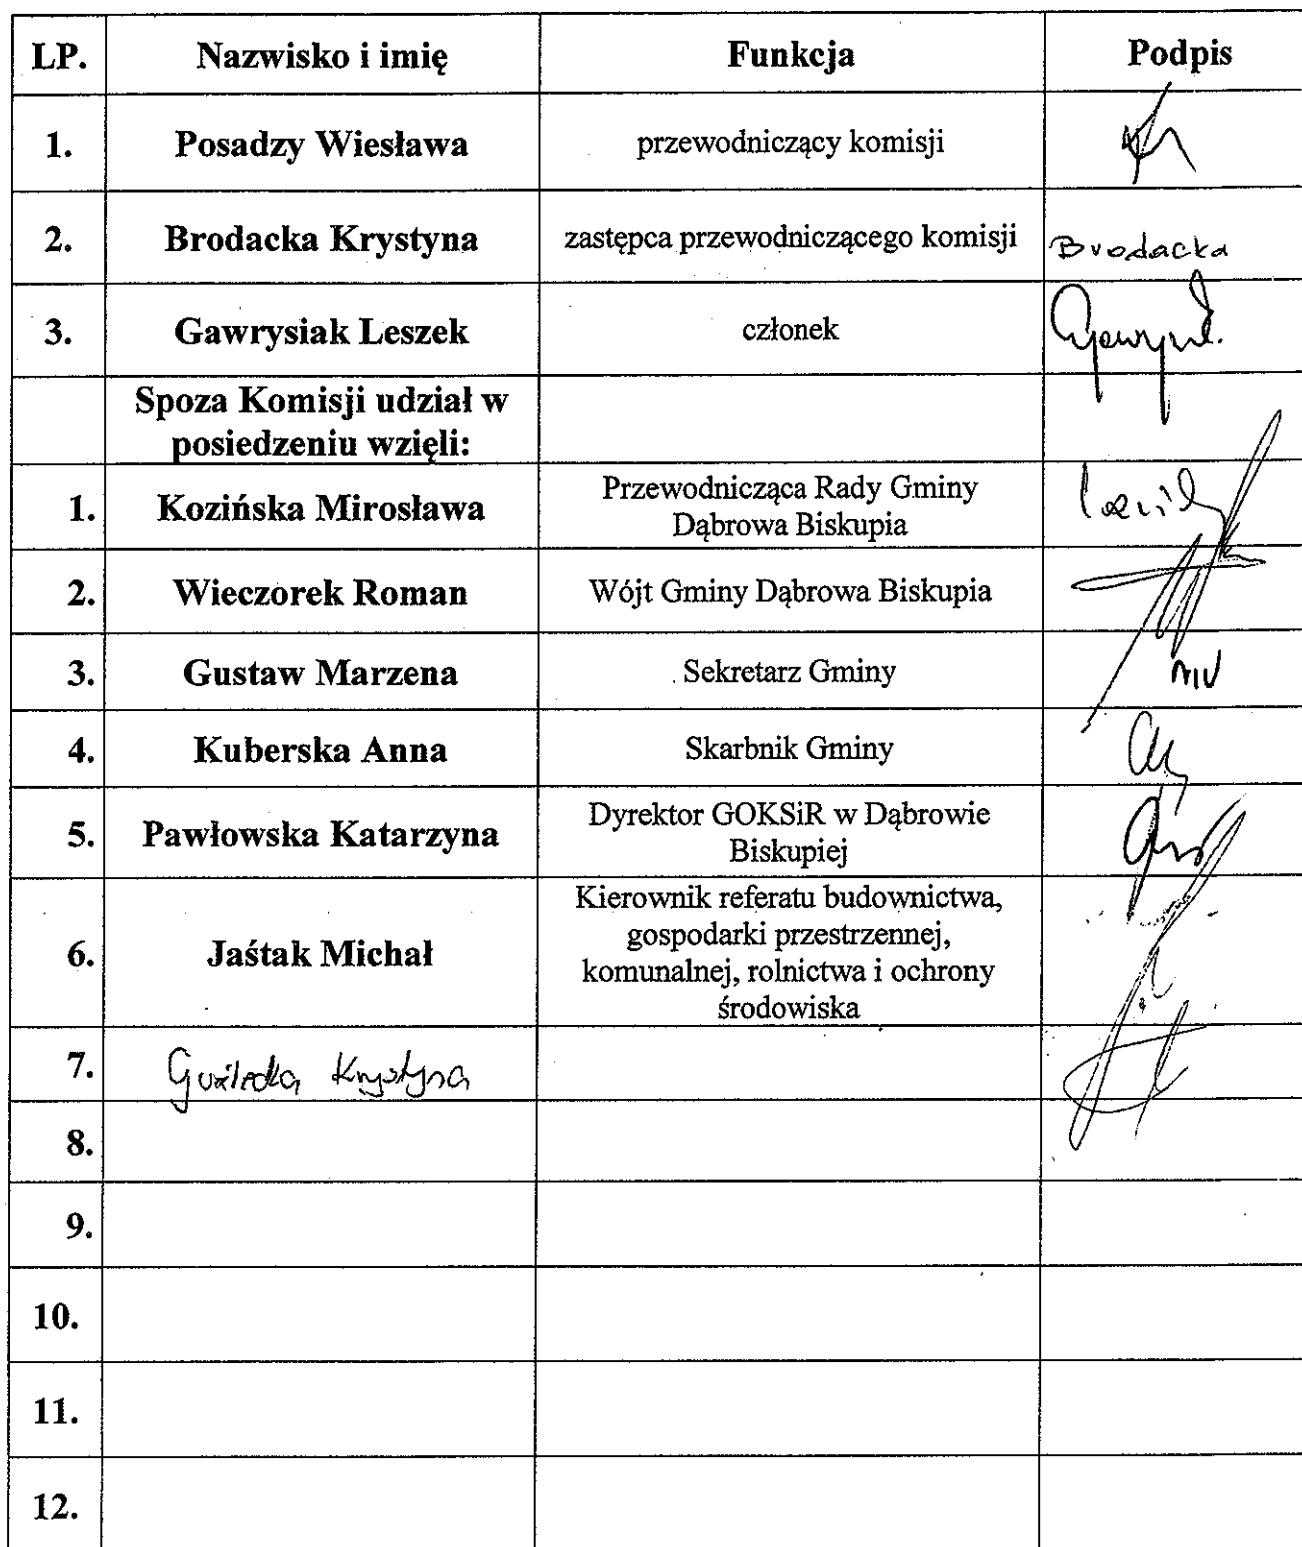 LP. Nazwisko i imię Funkcja Podpis
1. Posadzy Wiesława przewodniczący komisji
2. Brodacka Krystyna zastępca przewodniczącego komisji Brodacka
3. Gawrysiak Leszek członek
Spoza Komisji udział w
posiedzeniu wzięli:
1. Kozińska Mirosława Przewodnicząca Rady Gminy
Dąbrowa Biskupia
2. Wieczorek Roman Wójt Gminy Dąbrowa Biskupia
3. Gustaw Marzena Sekretarz Gminy
4. Kuberska Anna Skarbnik Gminy
5. Pawłowska Katarzyna Dyrektor GOKSiR w Dąbrowie
Biskupiej
6. Jaśtak Michał Kierownik referatu budownictwa,
gospodarki przestrzennej,
komunalnej, rolnictwa i ochrony
środowiska
7. Krystyna
8.
9.
10.
11.
12.